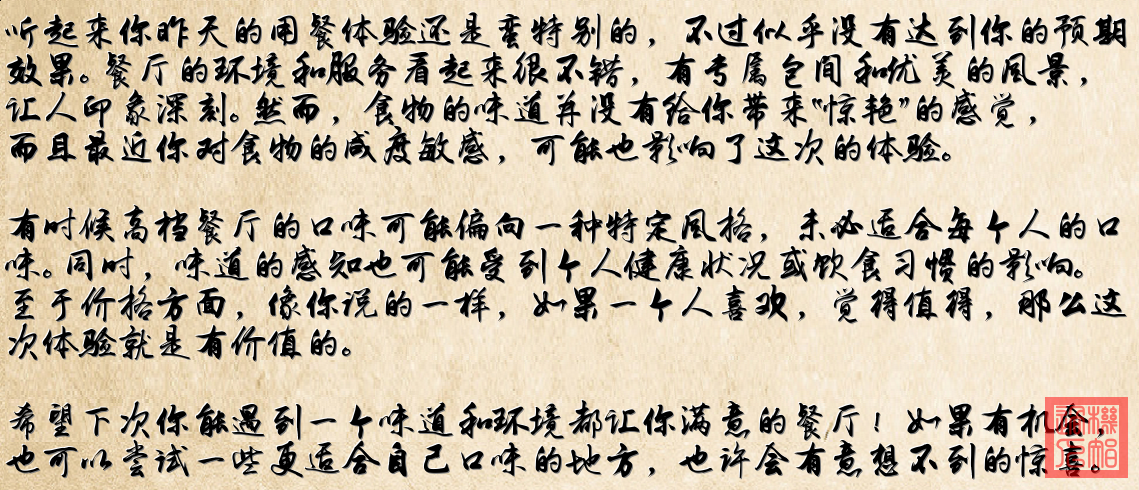 听起来你昨天的用餐体验还是蛮特别的，不过似乎没有达到你的预期
效果。餐厅的环境和服务看起来很不错，有专属包间和优美的风景，
让人印象深刻。然而，食物的味道并没有给你带来“惊艳”的感觉，
而且最近你对食物的咸度敏感，可能也影响了这次的体验。
有时候高档餐厅的口味可能偏向一种特定风格，未必适合每个人的口
味。同时，味道的感知也可能受到个人健康状况或饮食习惯的影响。
至于价格方面，像你说的一样，如果一个人喜欢，觉得值得，那么这
次体验就是有价值的。
希望下次你能遇到一个味道和环境都让你满意的餐厅！如果有机会，
也可以尝试一些更适合自己口味的地方，也许会有意想不到的惊喜。